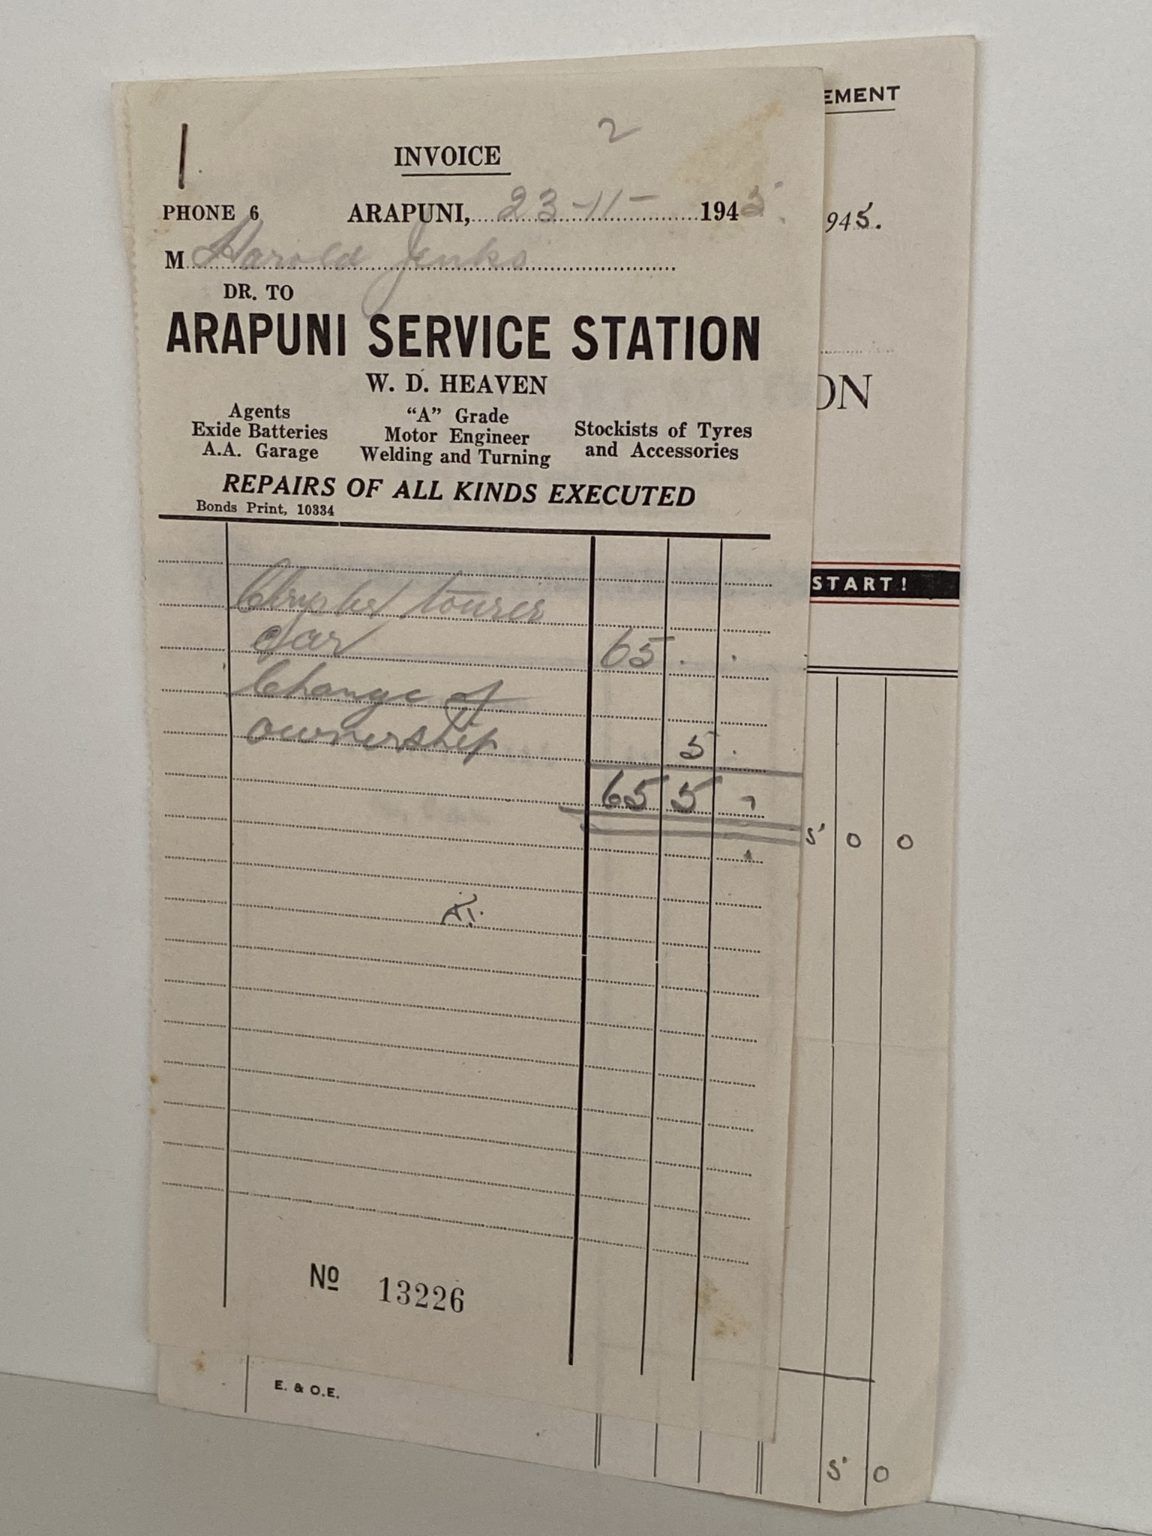 2
INVOICE
PHONE 6 ARAPUNI, 23-11- 1945.
M Harold Jenks
DR. TO
ARAPUNI SERVICE STATION
W. D. HEAVEN
Agents
Exide Batteries
A.A. Garage
"A" Grade
Motor Engineer
Welding and Turning
Stockists of Tyres
and Accessories
REPAIRS OF ALL KINDS EXECUTED
Bonds Print, 10334
Chrysler tourer
Car 65 . .
Change of
ownership 5 .
65 5 -
No 13226
EMENT
945.
ON
START!
5 0 0
E. & O.E.
5 0